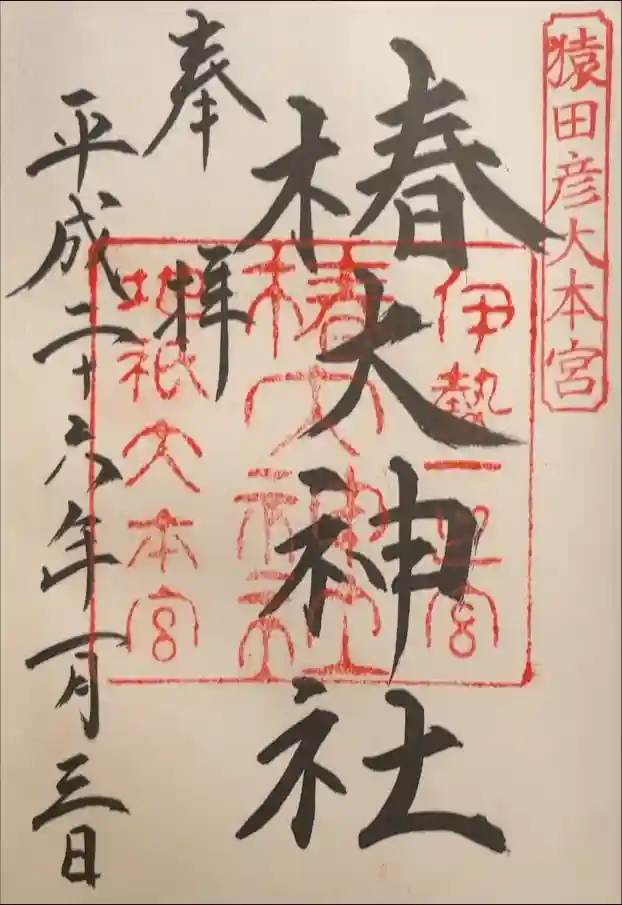 猿田彦大本宮
椿大神社
伊勢一之宮
椿大神社
地祇大本宮
奉拝
平成二十六年一月三日